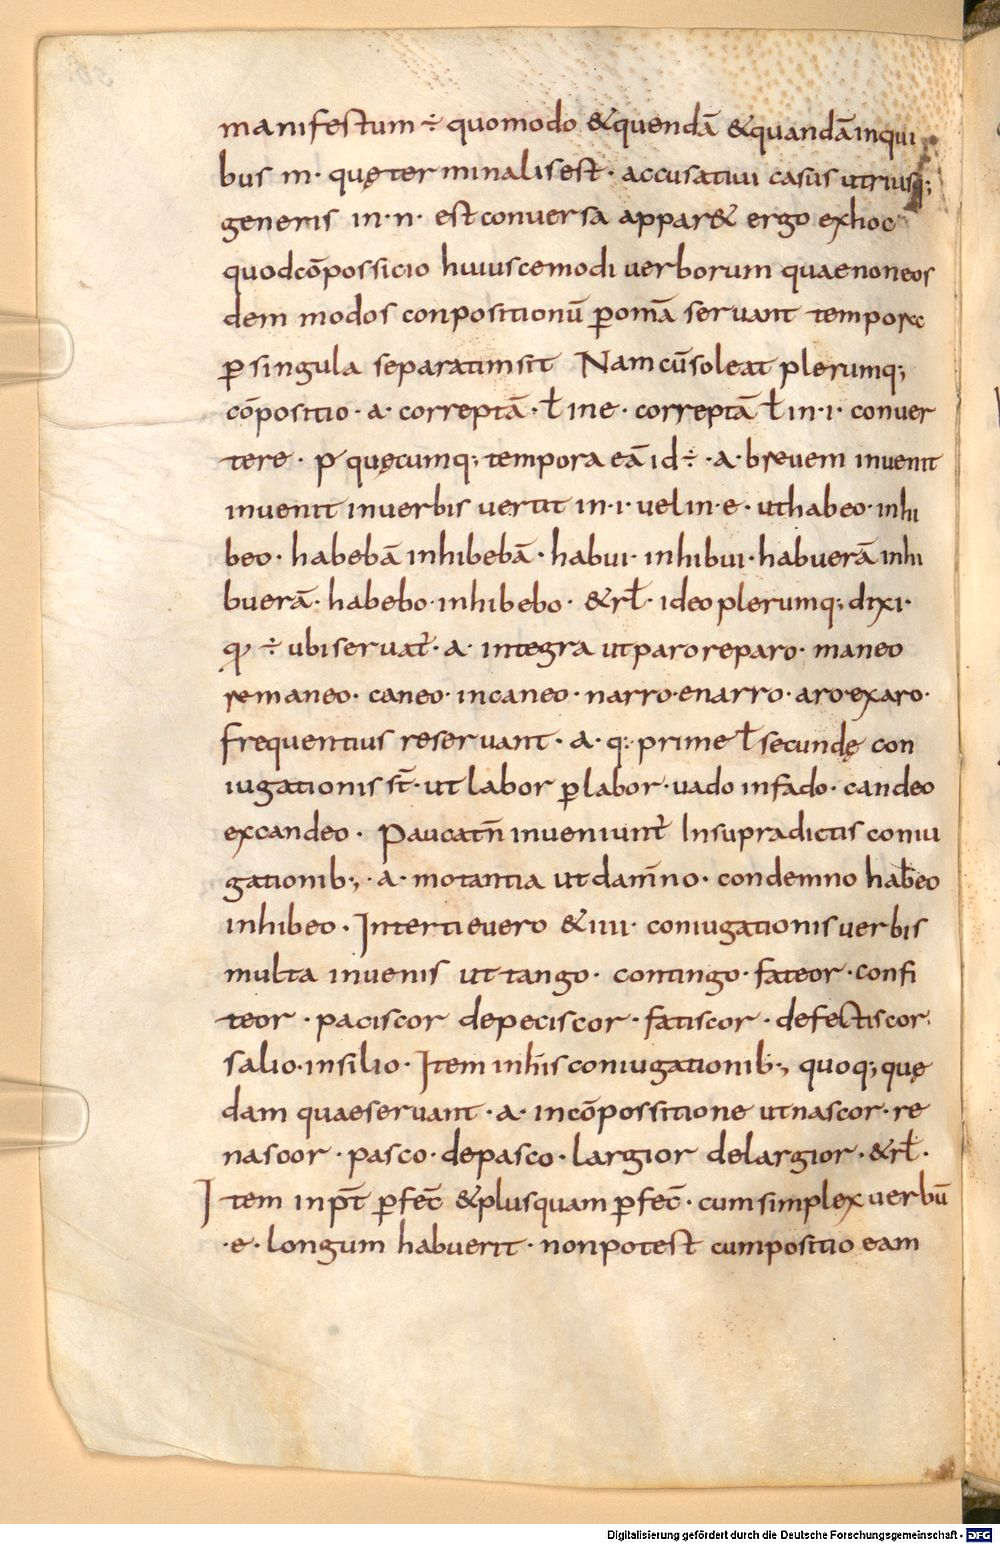 manifestum ÷ quomodo &quendā &quandā inqui
bus m· quę terminalis est· accusatiui casus utriusq;
generis in·n· est conuersa appar& ergo exhoc
quodcōpossicio huiuscemodi uerborum quaenoneos
dem modos conpositionū ꝑomā seruant tempore
ꝑ singula separatim sit Nam cū soleat plerumq;
cōpositio · a· correptā · ł ine · correptā ł in·i· conuer
tere · ꝑ quęcumq; tempora eā id ÷ · a· breuem inuenit
inuenit inuerbis uertit in·i· uel in·e· ut habeo· inhi
beo· habebā inhibebā· habui· inhibui· habuerā inhi
buerā· habebo· inhibebo· &rł· ideo plerumq; dixi·
qꝫ ÷ ubi seruat̄· a· integra ut paro reparo· maneo
remaneo· caneo· incaneo· narro· enarro· aro· exaro·
frequentius reseruant· a· q: prime ł secundę con
iugationis st̄· ut labor ꝑlabor· uado infado· candeo
excandeo· Paucatn̄ inueniunt̄ Insupradictis coniu
gationib; · a· motantia ut damn̄o· condemno habeo
inhibeo· Intertie uero & iiii· coniugationis uerbis
multa inuenis ut tango· contingo· fateor· confi
teor · paciscor depeciscor· fatiscor· defectiscor·
salio· insilio· Item inhis coniugationib; quoq; quę
dam quae seruant· a· incōpossitione ut nascor· re
nascor · pasco· depasco· largior delargior· &rł·
Item inpt̄ ꝑfec̄ &plusquam ꝑfec̄· cum simplex uerbū
·e· longum habuerit· non potest cumpositio eam
Digitalisierung gefördert durch die Deutsche Forschungsgemeinschaft - DFG